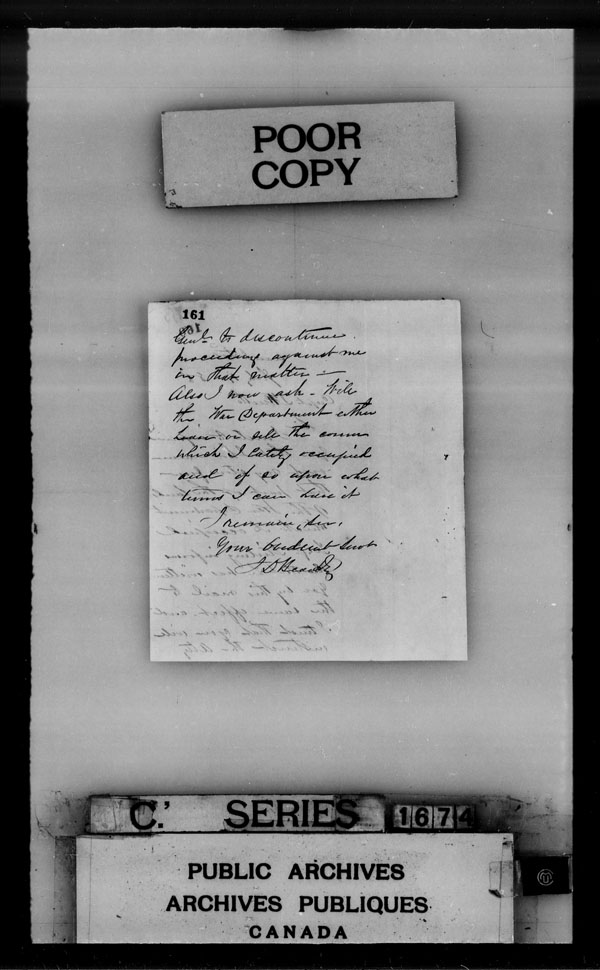 POOR
COPY
161
Genl. to discontinue
proceedings against me
in that matter —
Also I now ask - Will
the War Department either
Lease or sell the corner
which I lately occupied
and if so upon what
terms I can have it
I remain, Sir,
Your Obedient Servt
J D
C.' SERIES 1674
PUBLIC ARCHIVES
ARCHIVES PUBLIQUES
CANADA